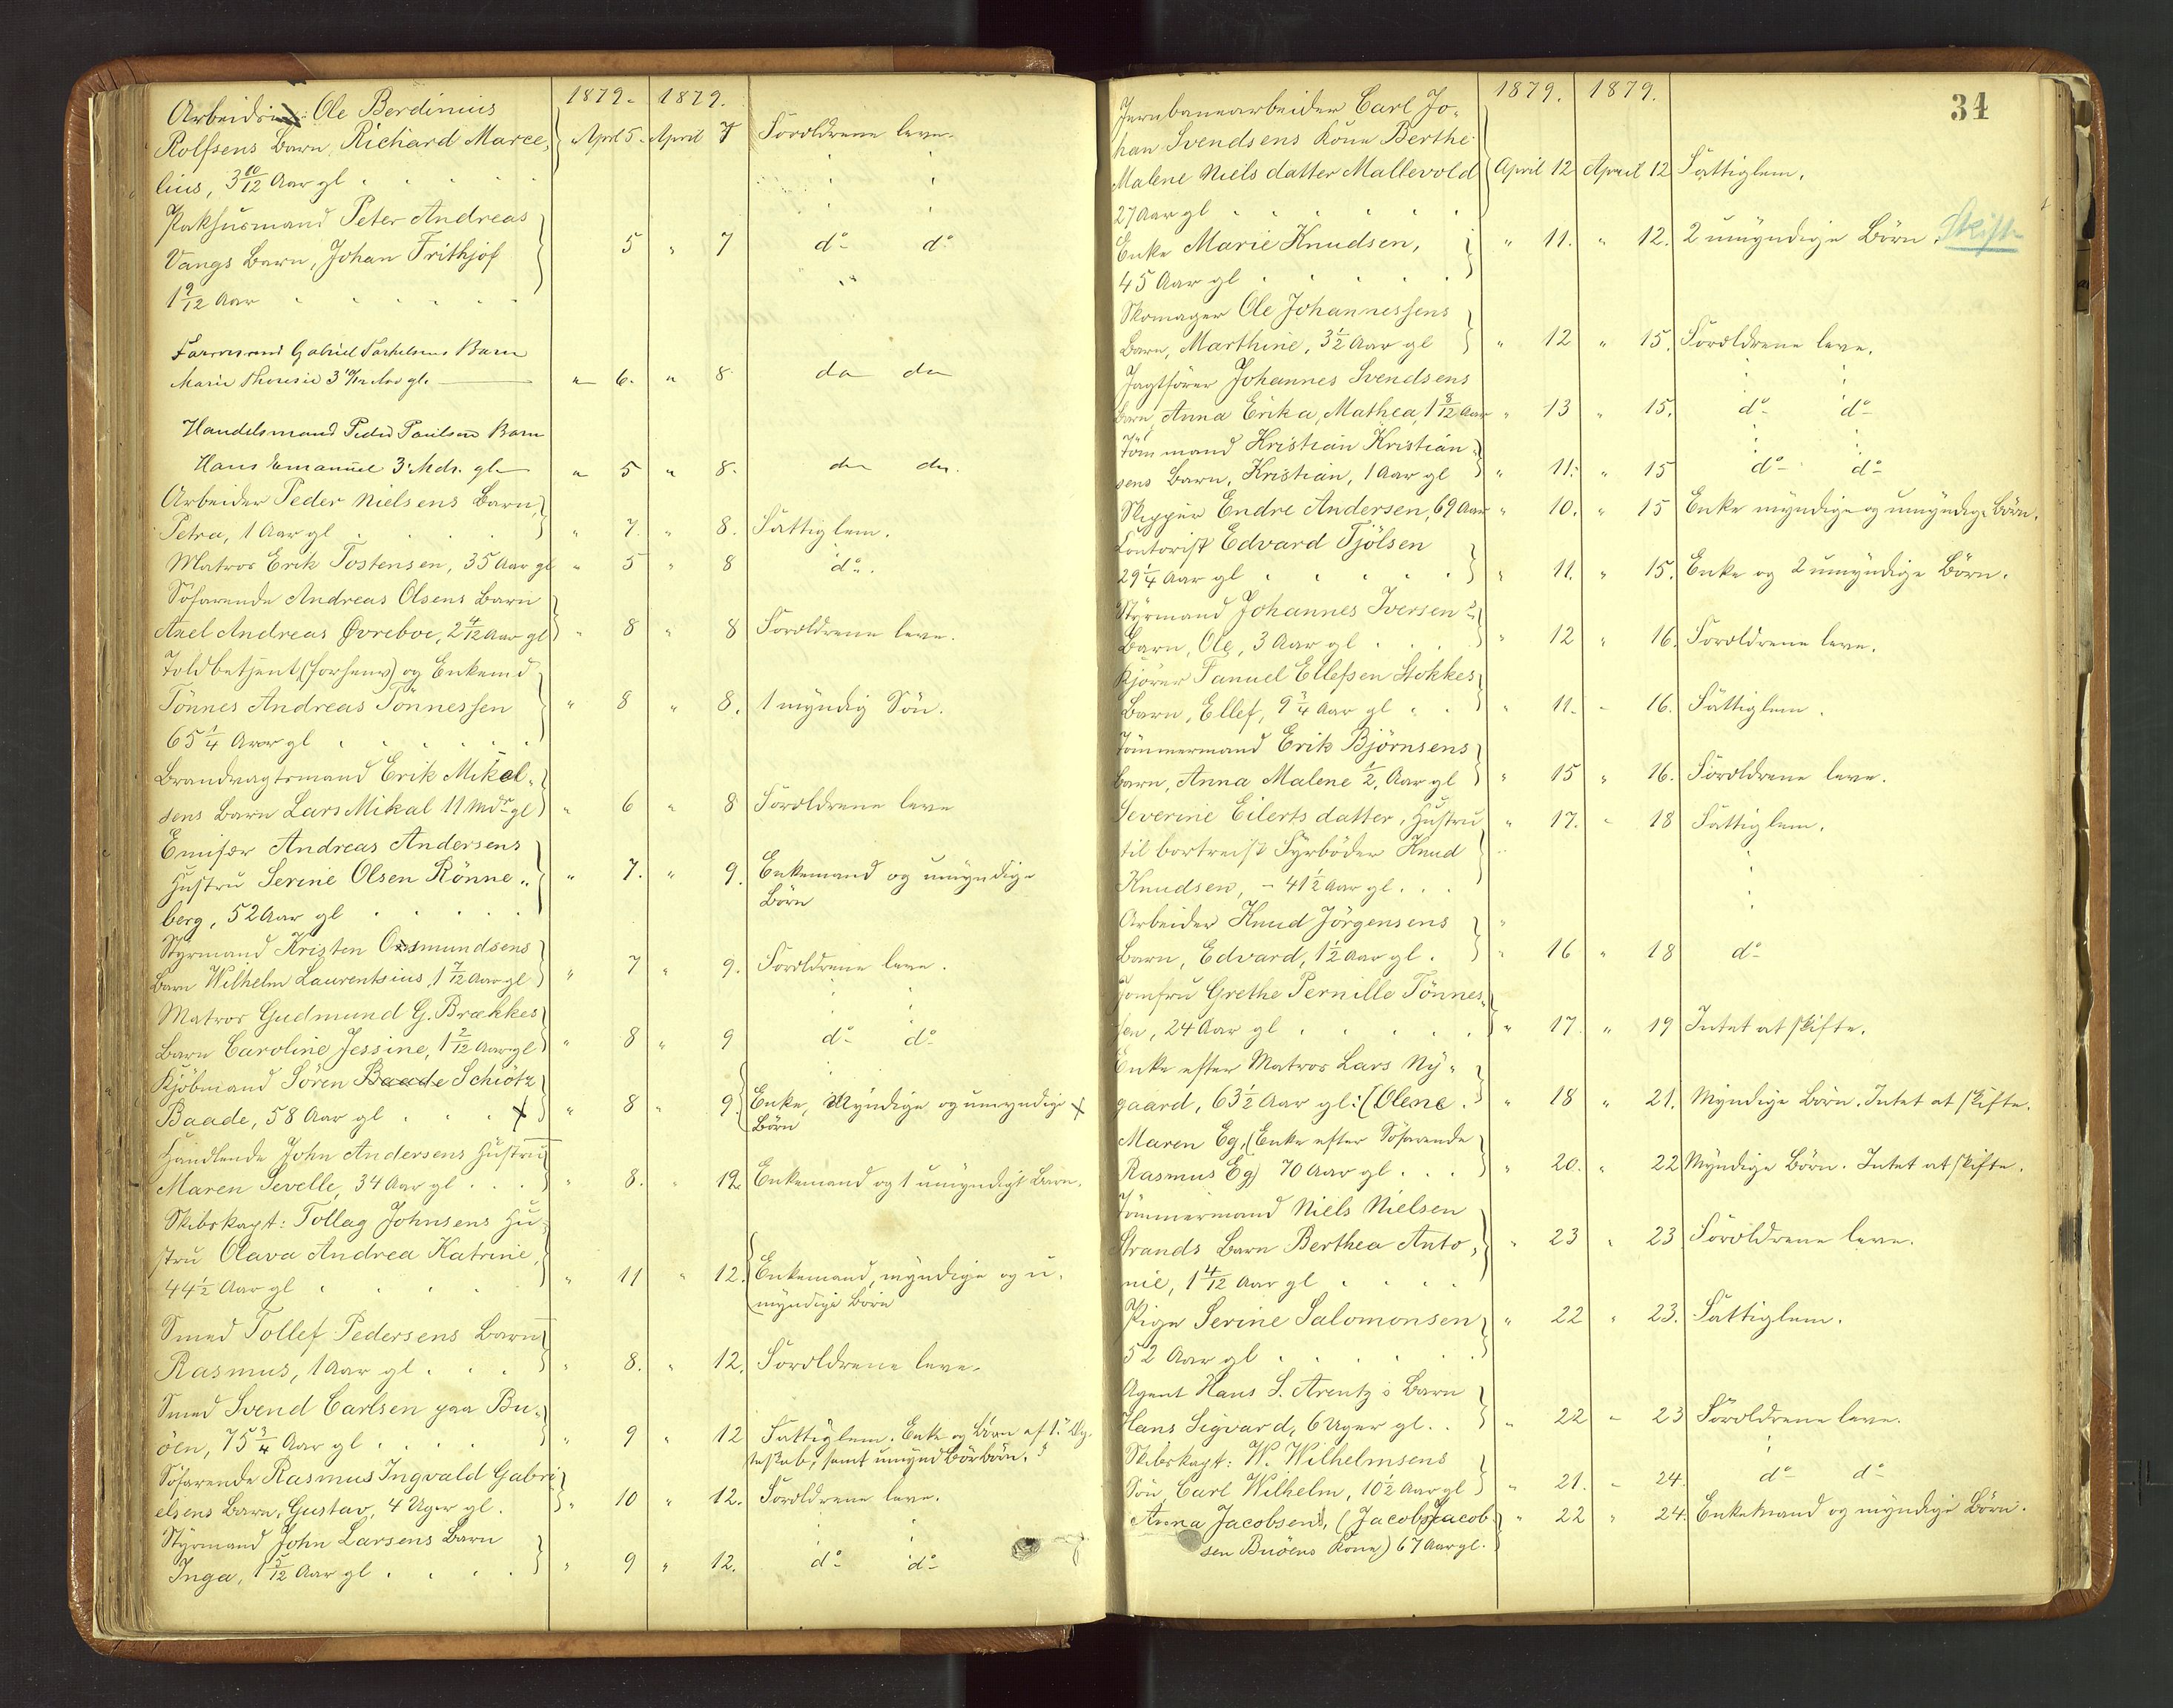 1879. 1879.
Arbeider Ole Berdinius
Rolfsens Barn, Richard Marce- April 5. April 7 Forældrene leve.
lius, 3 10/12 Aar gl
Pakhusmand Peter Andreas
Vangs Barn, Johan Frithjof 5 " 7 do do
1 9/12 Aar
Gabriel Torkelsens Barn
Marie Theresie 3 10/12 Aar gl. " 6. " 8 do do
Handelsmand Peder Paulsens Barn
Hans Emanuel 3 Mdr. gl. " 5 " 8. do do.
Arbeider Peder Nielsens Barn,
Petra, 1 Aar gl " 7. " 8. Fattiglem.
Matros Erik Tostensen, 35 Aar gl " 5 " 8 do.
Söfarende Andreas Olsens Barn
Axel Andreas Øvreboe, 2 4/12 Aar gl " 8 " 8 Forældrene leve.
Toldbetjent (forhenv) og Enkemd
Tönnes Andreas Tönnessen " 8 " 8. 1 myndig Sön.
65 1/4 Aar gl
Brandvagtsmand Erik Mikel-
sens Barn Lars Mikal 11 Mdr gl " 6 " 8 Forældrene leve
Emisær Andreas Andersens
Hustru Serine Olsen Rönne- " 7. " 9. Enkemand og umyndige
berg, 52 Aar gl Börn
Styrmand Kristen Osmundsens
Barn Wilhelm Laurentsius, 1 7/12 Aar gl " 7 " 9. Forældrene leve.
Matros Gudmund G. Brækkes
Barn Caroline Jessine, 1 2/12 Aar gl " 8 " 9 do do
Kjöbmand Sören Baade Schiötz
Baade, 58 Aar gl X " 8 " 9. Enke, Myndige og umyndige X
Börn
Handlende John Andersens Hustru
Maren Sevelle, 34 Aar gl " 8. " 12. Enkemand og 1 umyndigt Barn.
Skibskapt: Tollag Johnsens Hu-
stru Olava Andrea Katrine,
44 1/2 Aar gl " 11 " 12. Enkemand, myndige og u-
myndige Börn
Smed Tollef Pedersens Barn
Rasmus, 1 Aar gl " 8. " 12. Forældrene leve.
Smed Svend Carlsen paa Bu-
öen, 75 3/4 Aar gl " 9 " 12 Fattiglem. Enke og Börn af 1ste Æg-
teskab, samt umynd Börbörn.
Söfarende Rasmus Ingvald Gabri-
elsens Barn, Gustav, 4 Uger gl. " 10 " 12. Forældrene leve.
Styrmand John Larsens Barn
Inga, 1 5/12 Aar gl " 9 " 12. do do
34
1879. 1879.
Jernbanearbeider Carl Jo-
han Svendsens Kone Berthe
Malene Nielsdatter Mallevold April 12 April 12 Fattiglem.
27 Aar gl
Enke Marie Knudsen, " 11. " 12. 2 umyndige Börn. Skift
45 Aar gl
Skomager Ole Johannessens
Barn, Marthine, 3 1/2 Aar gl " 12 " 15. Forældrene leve.
Jagtförer Johannes Svendsens
Barn, Anna Erika Mathea, 1 8/12 Aar " 13 " 15. do do
Tömmand Kristian Kristian-
sens Barn, Kristian, 1 Aar gl " 11. " 15 do do
Skipper Endre Andersen, 69 Aar " 10. " 15 Enke myndige og umyndige Börn.
Contorist Edvard Tjölsen
29 1/4 Aar gl " 11. " 15. Enke og 2 umyndige Börn.
Styrmand Johannes Iversens
Barn, Ole, 3 Aar gl " 12 " 16. Forældrene leve.
Kjörer Tanuel Ellefsen Stokkes
Barn, Ellef, 9 3/4 Aar gl " 11. " 16. Fattiglem.
Tömmermand Erik Björnsens
Barn, Anna Malene 1/2, Aar gl " 15 " 16. Forældrene leve.
Severine Eilertsdatter, Hustru " 17. " 18 Fattiglem.
til bortreist Fyrböder Knud
Knudsen, - 41 1/2 Aar gl.
Arbeider Knud Jörgensens
Barn, Edvard, 1 1/2 Aar gl. " 16 " 18 do
Jomfru Grethe Pernille Tönnes-
sen, 24 Aar gl " 17 " 19 Intet at skifte.
Enke efter Matros Lars Ny-
gaard, 63 1/2 Aar gl: (Olene. " 18 " 21. Myndige Börn. Intet at skifte.
Maren Eg, (Enke efter Söfarende
Rasmus Eg) 70 Aar gl. " 20. " 22 Myndige Börn. Intet at skifte.
Tömmermand Niels Nielsen
Strands Barn Berthea Anto- " 23 " 23 Forældrene leve.
nie, 1 4/12 Aar gl
Pige Serine Salomonsen " 22 " 23. Fattiglem.
52 Aar gl
Agent Hans S. Arentz's Barn
Hans Sigvard, 6 Uger gl. " 22 " 23 Forældrene leve.
Skibskapt: W. Wilhelmsens
Sön, Carl Wilhelm, 10 1/2 Aar gl " 21. " 24. do do
Anna Jacobsen, (Jacob Jacob- " 22 " 24. Enkemand og myndige Börn.
sen Buöens Kone) 67 Aar gl.